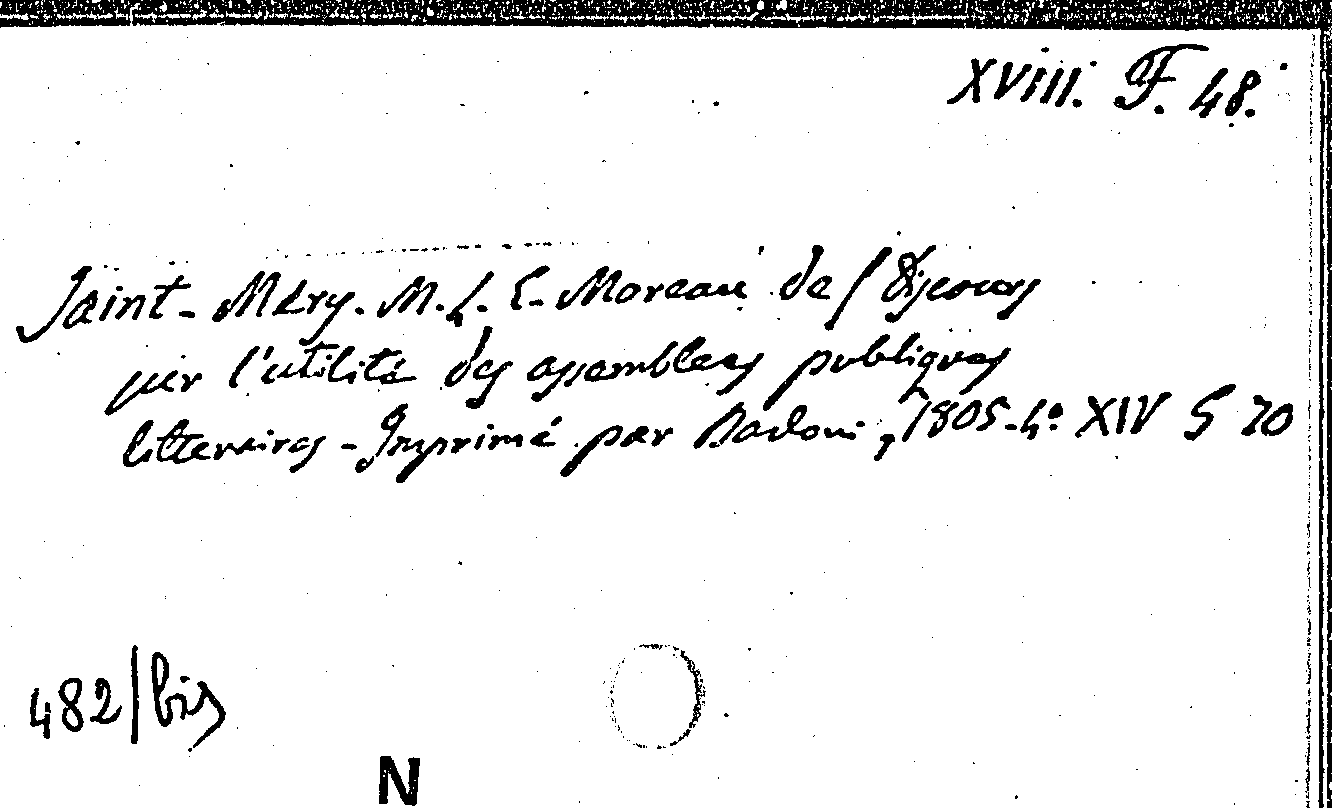 XVIII. F. 48.
Saint-Méry. M. L. E. Moreau de / Discours
sur l'utilité des assemblees publiques
litteraires - Imprimé par Bodoni, 1805-4° XIV 5 70
482/bis
N